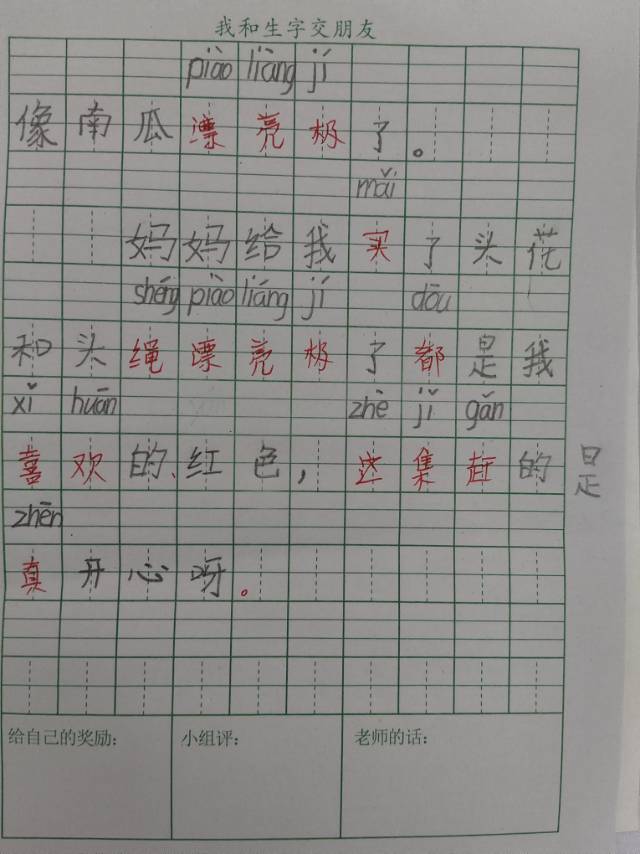 我和生字交朋友
piào liàng jí
像南瓜漂亮极了。
mǎi
妈妈给我买了头花
shéng piào liáng jí dōu
和头绳漂亮极了都是我
xǐ huān zhè jí gǎn
喜欢的、红色,这集赶的
是
zhēn
真开心呀。
给自己的奖励:
小组评:
老师的话: